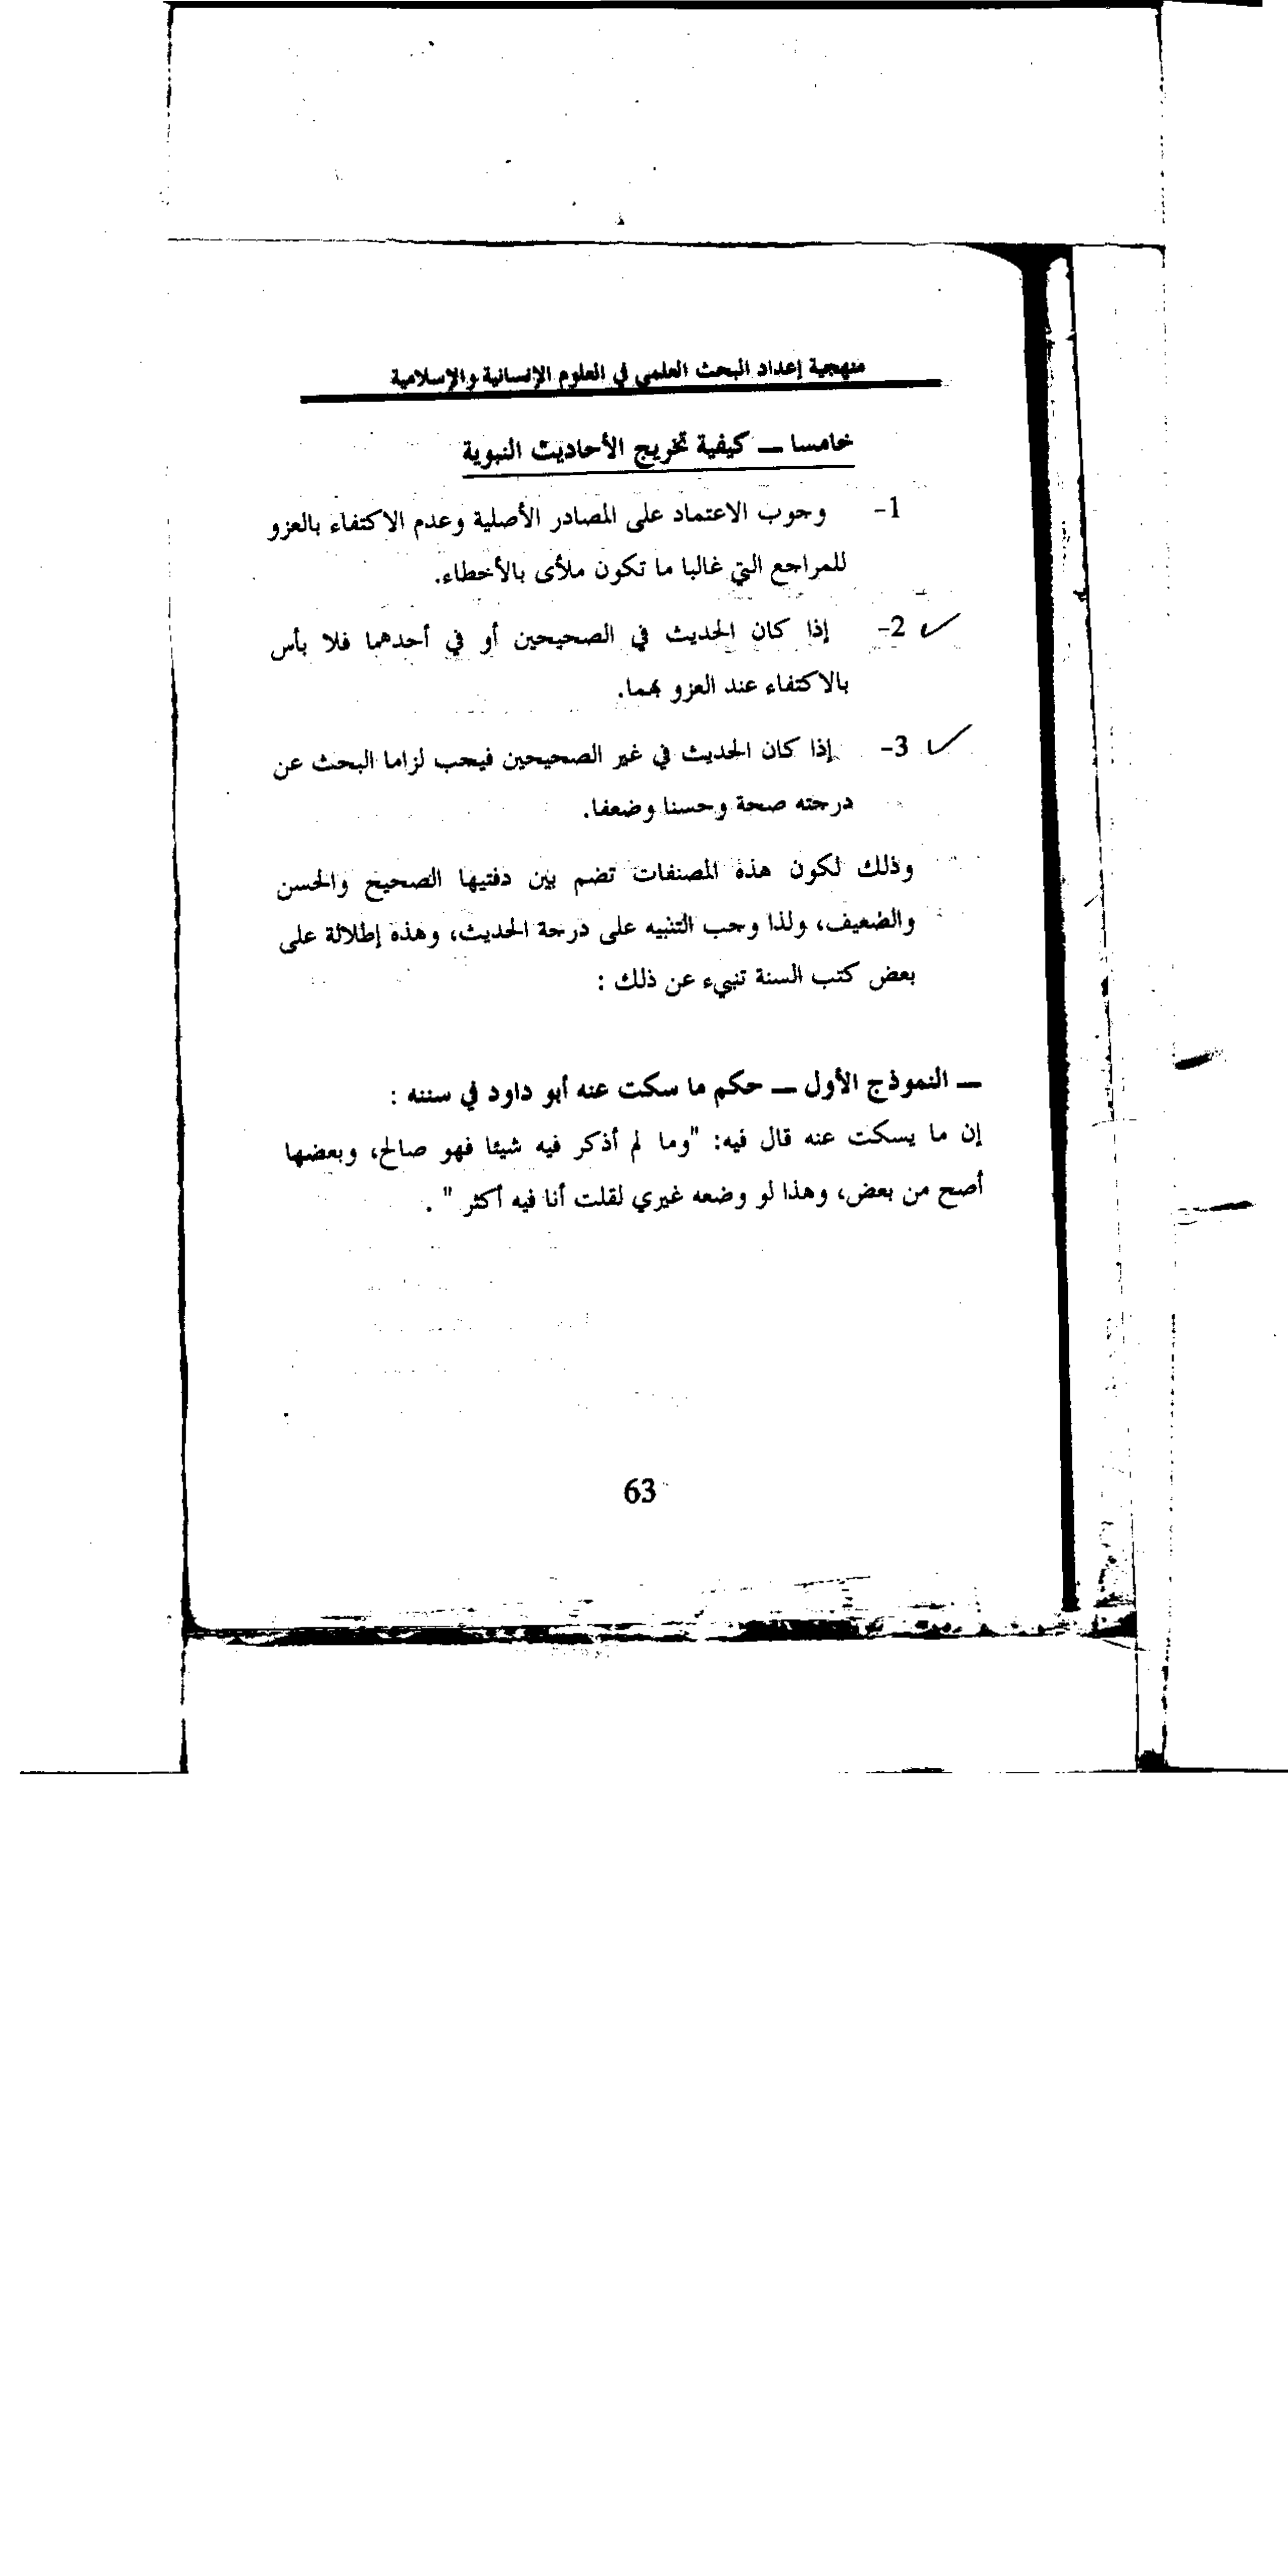 منهجية إعداد البحث العلمي في العلوم الإنسانية والإسلامية
خامسا – كيفية تخريج الأحاديث النبوية
1- وجوب الاعتماد على المصادر الأصلية وعدم الاكتفاء بالعزو
للمراجع التي غالبا ما تكون ملأى بالأخطاء.
2- إذا كان الحديث في الصحيحين أو في أحدهما فلا بأس
بالاكتفاء عند العزو بهما.
3- إذا كان الحديث في غير الصحيحين فيجب لزاما البحث عن
درجته صحة وحسنا وضعفا.
وذلك لكون هذه المصنفات تضم بين دفتيها الصحيح والحسن
والضعيف، ولذا وجب التنبيه على درجة الحديث، وهذه إطلالة على
بعض كتب السنة تنبيء عن ذلك :
– النموذج الأول – حكم ما سكت عنه أبو داود في سننه :
إن ما يسكت عنه قال فيه: "وما لم أذكر فيه شيئا فهو صالح، وبعضها
أصح من بعض، وهذا لو وضعه غيري لقلت أنا فيه أكثر " .
63